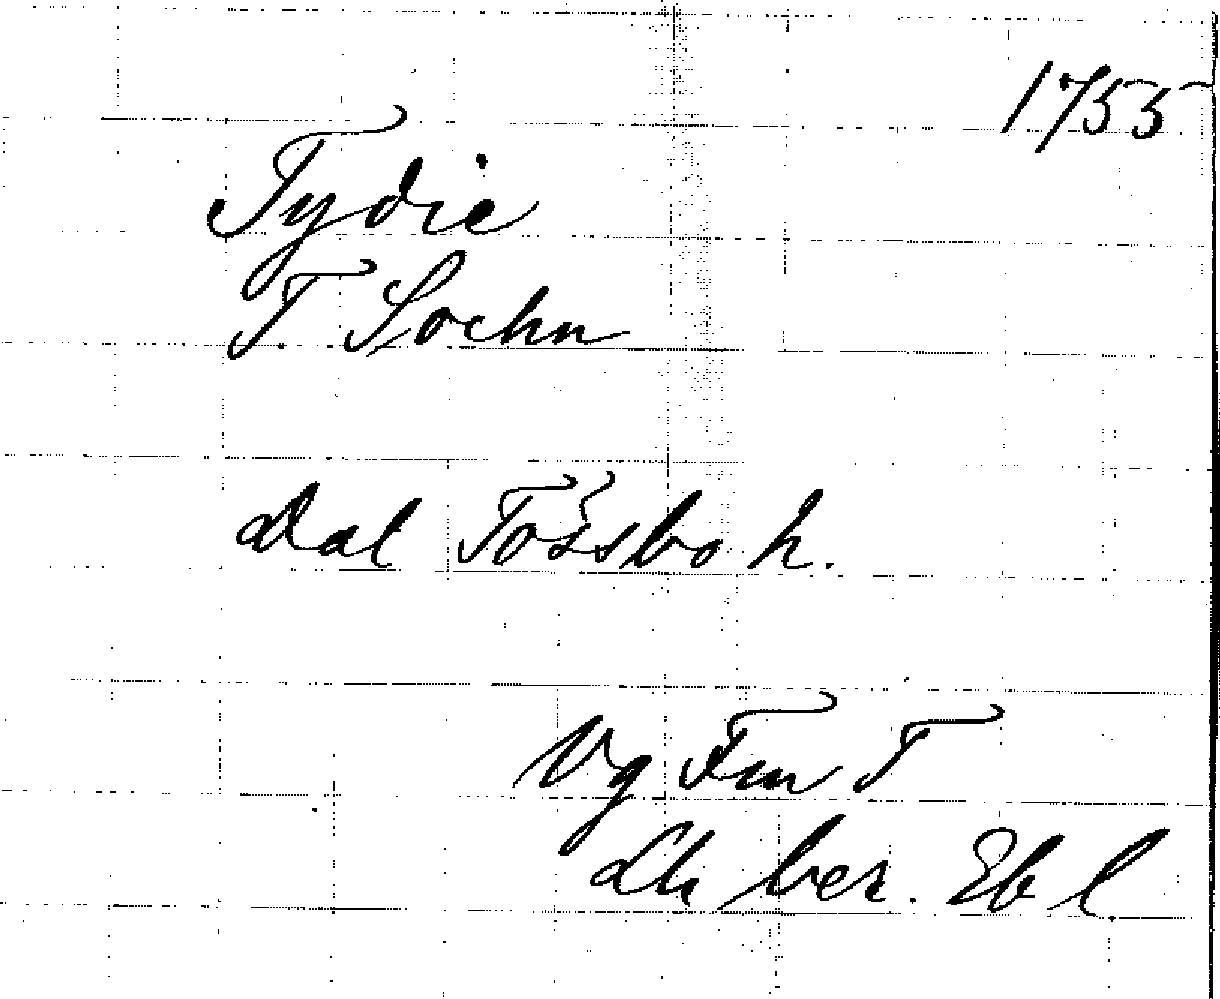 1755
Tydie
T. Sochn
Dal Tössbo h.
Vg Fm T
Lh ber. Ebl.